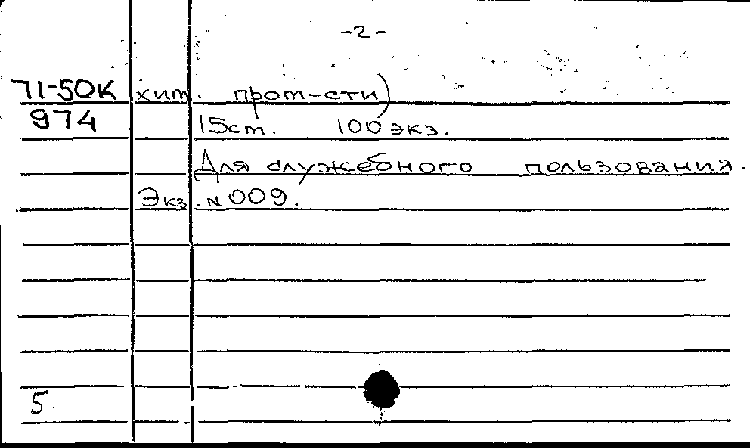 -2-
71-50К хим. пром-сти)
974 15ст. 100 экз.
Для служебного пользования.
Экз. № 009.
5